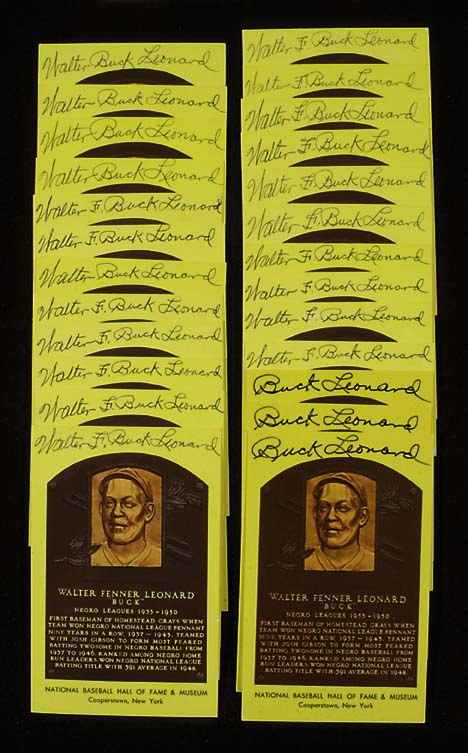 Walter Buck Leonard
Walter Buck Leonard
Walter Buck Leonard
Walter Buck Leonard
Walter F. Buck Leonard
Walter F. Buck Leonard
Walter Buck Leonard
Walter F. Buck Leonard
Walter F. Buck Leonard
Walter F. Buck Leonard
Walter F. Buck Leonard
Walter F. Buck Leonard
WALTER FENNER LEONARD
"BUCK"
NEGRO LEAGUES 1933-1950
FIRST BASEMAN OF HOMESTEAD GRAYS WHEN
TEAM WON NEGRO NATIONAL LEAGUE PENNANT
NINE YEARS IN A ROW, 1937-1945. TEAMED
WITH JOSH GIBSON TO FORM MOST FEARED
BATTING TWOSOME IN NEGRO BASEBALL FROM
1937 TO 1946. RANKED AMONG NEGRO HOME
RUN LEADERS. WON NEGRO NATIONAL LEAGUE
BATTING TITLE WITH .391 AVERAGE IN 1948.
NATIONAL BASEBALL HALL OF FAME & MUSEUM
Cooperstown, New York
Walter F. Buck Leonard
Walter F. Buck Leonard
Walter F. Buck Leonard
Walter F. Buck Leonard
Walter F. Buck Leonard
Walter F. Buck Leonard
Walter F. Buck Leonard
Walter F. Buck Leonard
Walter F. Buck Leonard
Walter F. Buck Leonard
Buck Leonard
Buck Leonard
Buck Leonard
WALTER FENNER LEONARD
"BUCK"
NEGRO LEAGUES 1933-1950
FIRST BASEMAN OF HOMESTEAD GRAYS WHEN
TEAM WON NEGRO NATIONAL LEAGUE PENNANT
NINE YEARS IN A ROW, 1937-1945. TEAMED
WITH JOSH GIBSON TO FORM MOST FEARED
BATTING TWOSOME IN NEGRO BASEBALL FROM
1937 TO 1946. RANKED AMONG NEGRO HOME
RUN LEADERS. WON NEGRO NATIONAL LEAGUE
BATTING TITLE WITH .391 AVERAGE IN 1948.
NATIONAL BASEBALL HALL OF FAME & MUSEUM
Cooperstown, New York